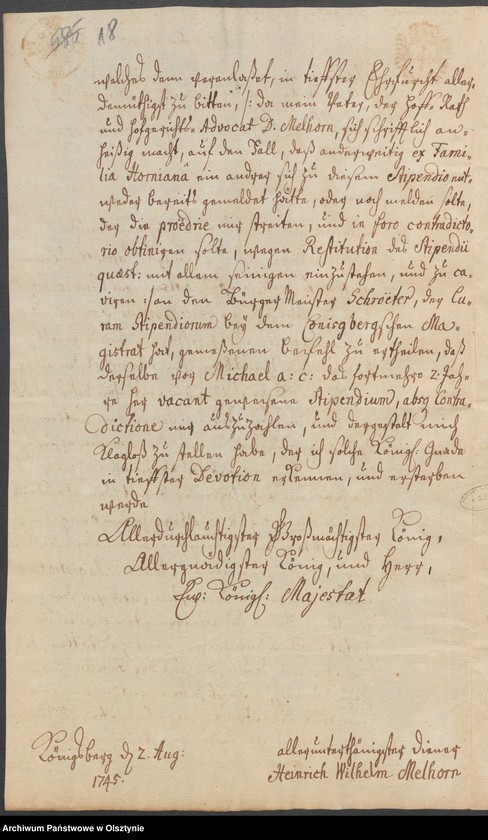 585 18
welches denn veranlaßet, in tieffster Ehrfurcht aller-
demüthigst zu bitten, /: da mein Vater, der Hoff-Rath
und Hofgerichts-Advocat D. Melhorn, sich schrifftlich an-
heißig macht, auf den Fall, daß anderweitig ex Fami-
lia Horniana ein andrer sich zu diesem Stipendio ent-
weder bereits gemeldet hätte, oder noch melden solte,
der die proëdrie mir streiten, und in foro contradicto-
rio obtiniren solte, wegen Restitution des Stipendii
quæst: mit allem seinigen einzustehen, und zu ca-
viren :/ an den Bürger Meister Schröeter, der Cu-
ram Stipendiorum bey dem Cönigsbergschen Ma-
gistrat hat, gemeßenen Befehl zu ertheilen, daß
derselbe vor Michael a: c: das fortmehro 2. Jah-
re her vacant gewesene Stipendium, absq Contra-
dictione mir auszuzahlen, und dergestalt mich
Klagloß zu stellen habe, der ich solche Königl: Gnade
in tieffster Devotion erkennen, und ersterben
werde
Allerdurchlauchtigster Großmächtigster König,
Allergnädigster König, und Herr,
Ew: Königl: Majestæt
Königsberg d 2. Aug:
1745.
allerunterthänigster Diener
Heinrich Wilhelm Melhorn
Archiwum Państwowe w Olsztynie